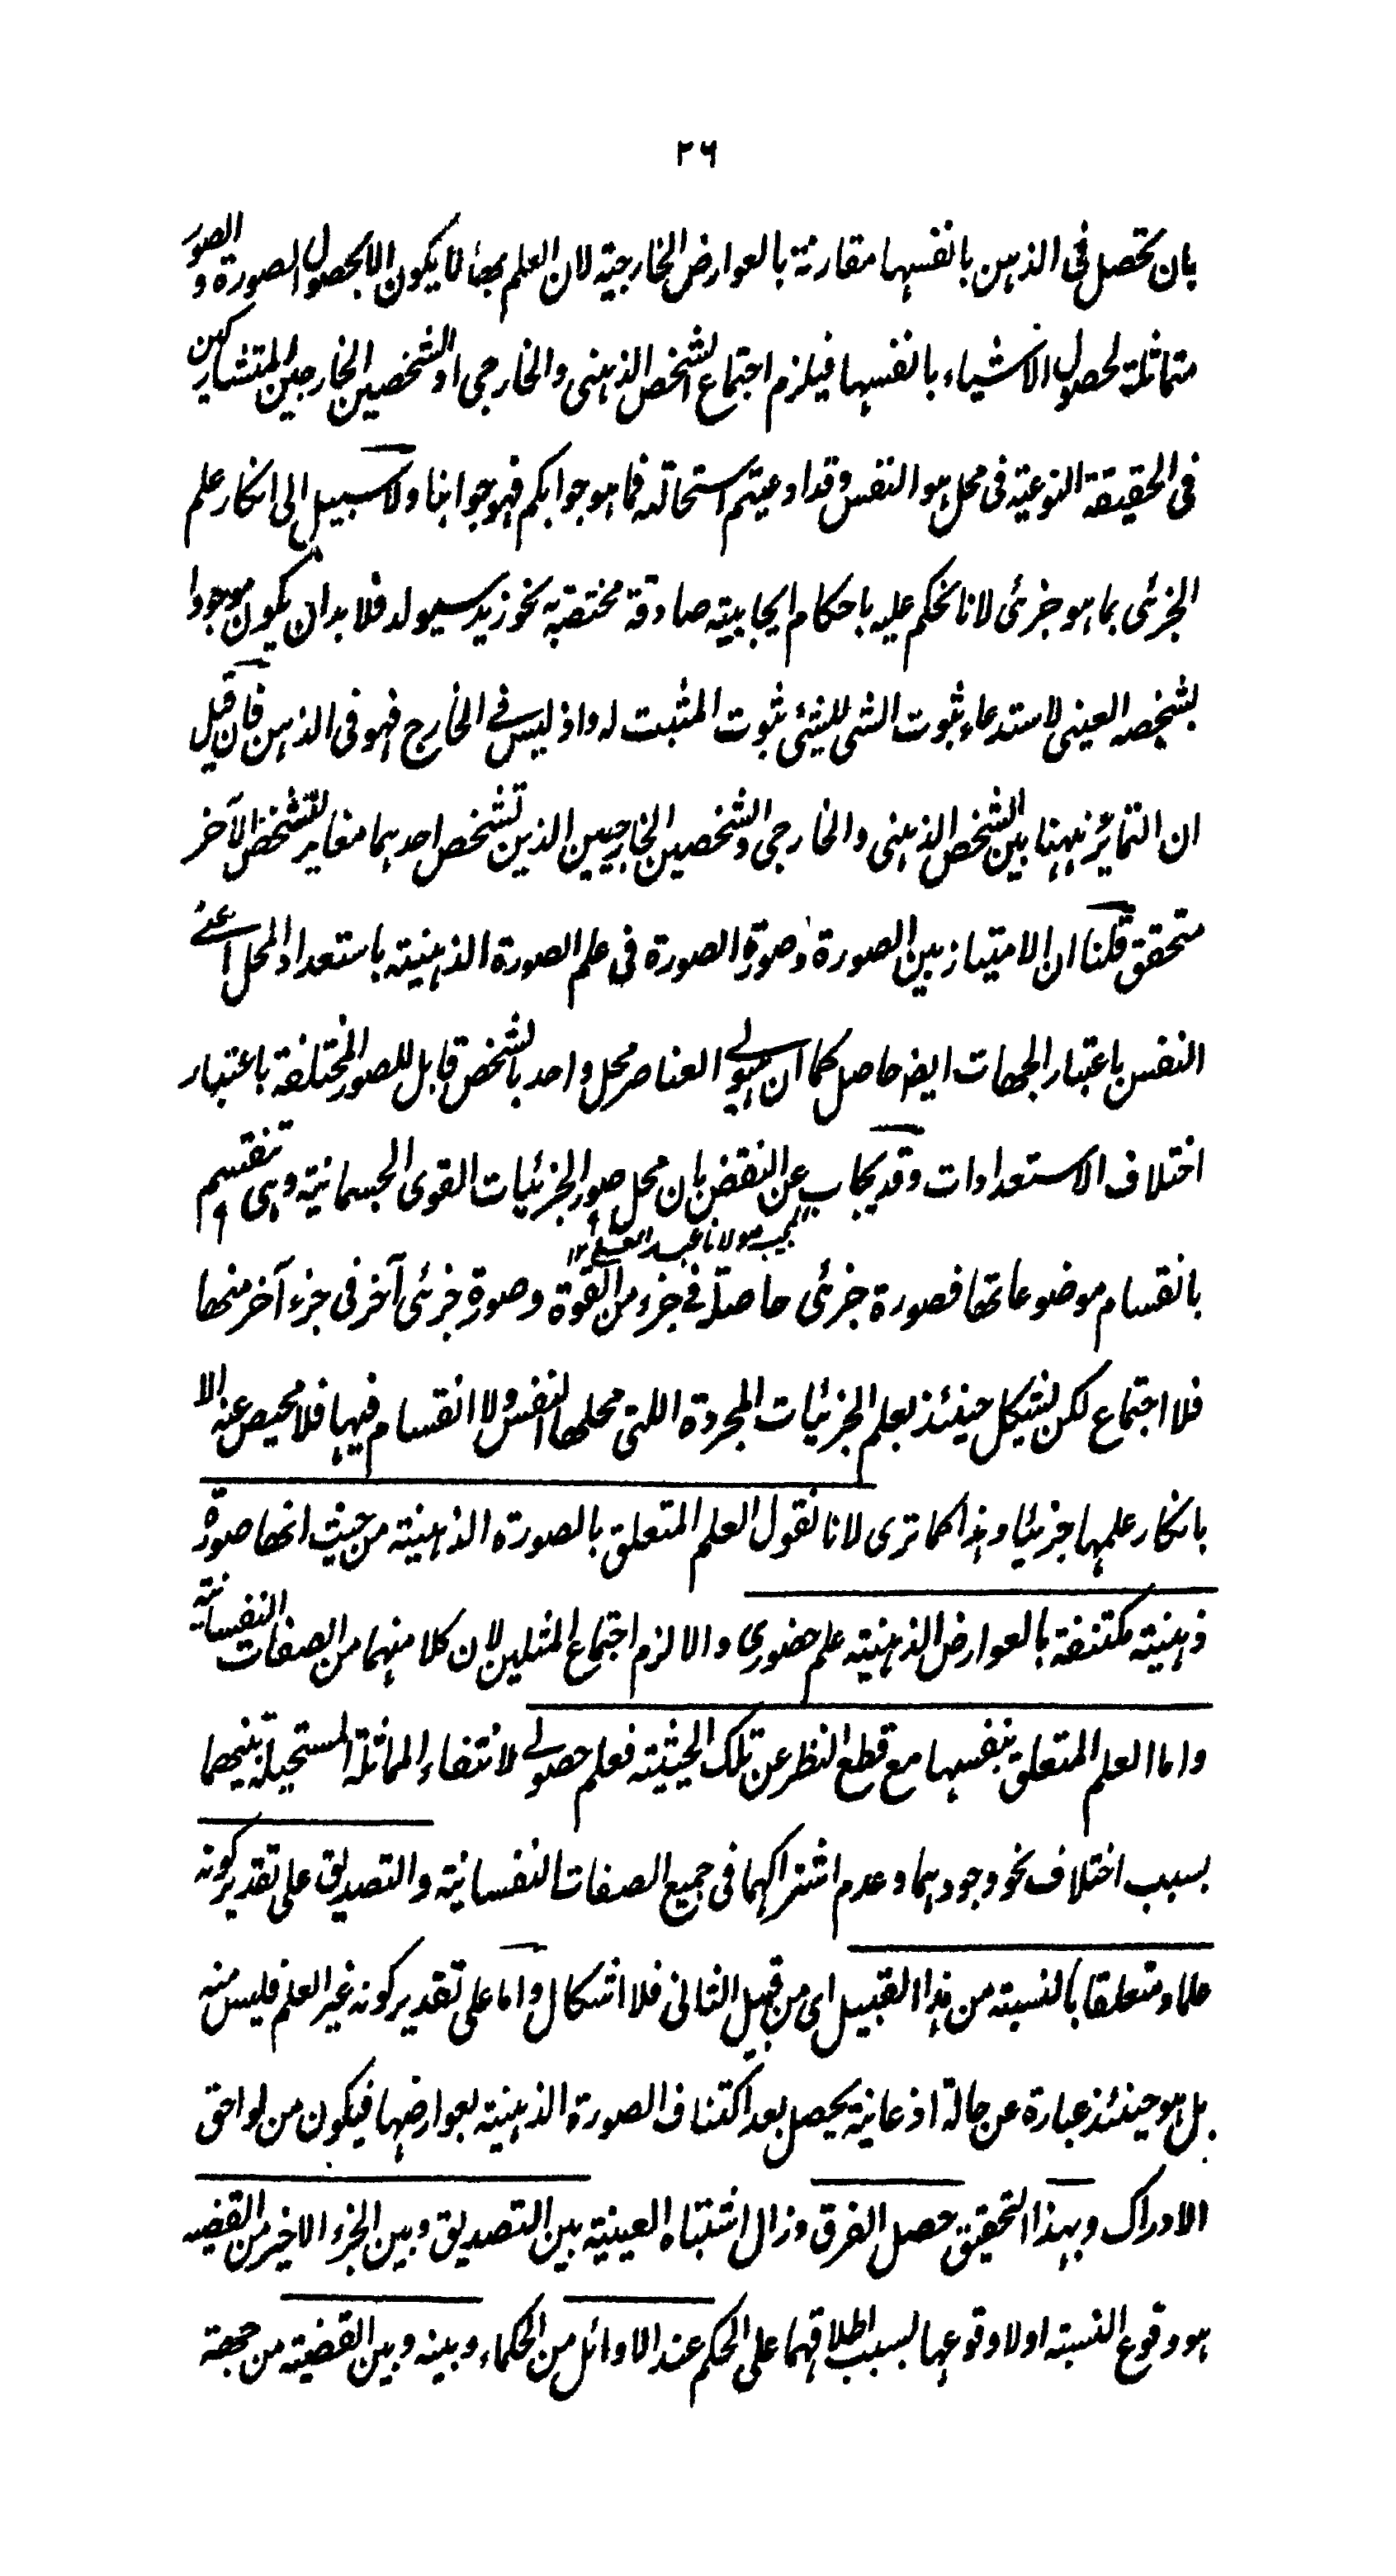 ٢٦
بان تحصل فی الذہن بانفسہا مقارنۃ بالعوارض الخارجیۃ لان العلم بہا لا یکون الا بحصول الصورۃ و الصور
متماثلۃ لحصول الاشیاء بانفسہا فیلزم اجتماع الشخص الذہنی والخارجی او الشخصین الخارجین المتشارکین
فی الحقیقۃ النوعیۃ فی محل ہو النفس وقد ادعیتم استحالتہ فما ہو جوابکم فہو جوابنا ولا سبیل الی انکار علم
الجزئی بما ہو جزئی لانا نحکم علیہ باحکام ایجابیۃ صادقۃ مختصۃ بہ نحو زید سیولد فلا بد ان یکون موجودا
بشخصہ العینی لاستدعاء ثبوت الشی للشئی ثبوت المثبت لہ واذ لیس فے الخارج فہو فی الذہن فان قیل
ان التمائز ہہنا بین الشخص الذہنی والخارجی والشخصین الخارجیین الذین تشخص احدہما مغایر لتشخص الآخر
متحقق قلنا ان الامتیاز بین الصورۃ وصورۃ الصورۃ فی علم الصورۃ الذہنیۃ باستعداد المحل اعنے
النفس باعتبار الجہات ایضا حاصل کما ان ہیولے العناصر محل واحد بالشخص قابل للصور المختلفۃ باعتبار
اختلاف الاستعدادات وقد یجاب عن النقض بان محل صور الجزئیات القوی الجسمانیۃ وہی تنقسم
المجیب مولانا عبد العلی ١٢
بانقسام موضوعاتھا فصورۃ جزئی حاصلۃ فے جزء من القوۃ وصورۃ جزئی آخر فی جزء آخر منھا
فلا اجتماع لکن یشکل حینئذ بعلم الجزئیات المجردۃ اللتی محلھا النفس ولا انقسام فیہا فلا محیص عنہ الا
بانکار علمہا جزئیا وہذا کما تری لانا نقول العلم المتعلق بالصورۃ الذہنیۃ من حیث انھا صورۃ
ذہنیۃ مکتنفۃ بالعوارض الذہنیۃ علم حضوری والا لزم اجتماع المثلین لان کلا منہما من الصفات النفسانیۃ
واما العلم المتعلق بنفسہا مع قطع النظر عن تلک الحیثیۃ فعلم حصولے لانتفاء المماثلۃ المستحیلۃ بینھما
بسبب اختلاف نحو وجودہما وعدم اشتراکہما فی جمیع الصفات النفسانیۃ والتصدیق علی تقدیر کونہ
علما ومتعلقا بالنسبۃ من ہذا القبیل ای من قبیل الثانی فلا اشکال واما علی تقدیر کونہ غیر العلم فلیس منہ
بل ہو حینئذ عبارۃ عن حالۃ اذعانیۃ یحصل بعد اکتناف الصورۃ الذہنیۃ بعوارضہا فیکون من لواحق
الادراک وبہذا التحقیق حصل الفرق وزال اشتباہ العینیۃ بین التصدیق وبین الجزء الاخیر من القضیہ
ہو وقوع النسبۃ اولا وقوعہا بسبب اطلاقہما علی الحکم عند الاوائل من الحکماء وبینہ وبین القضیۃ من جھۃ